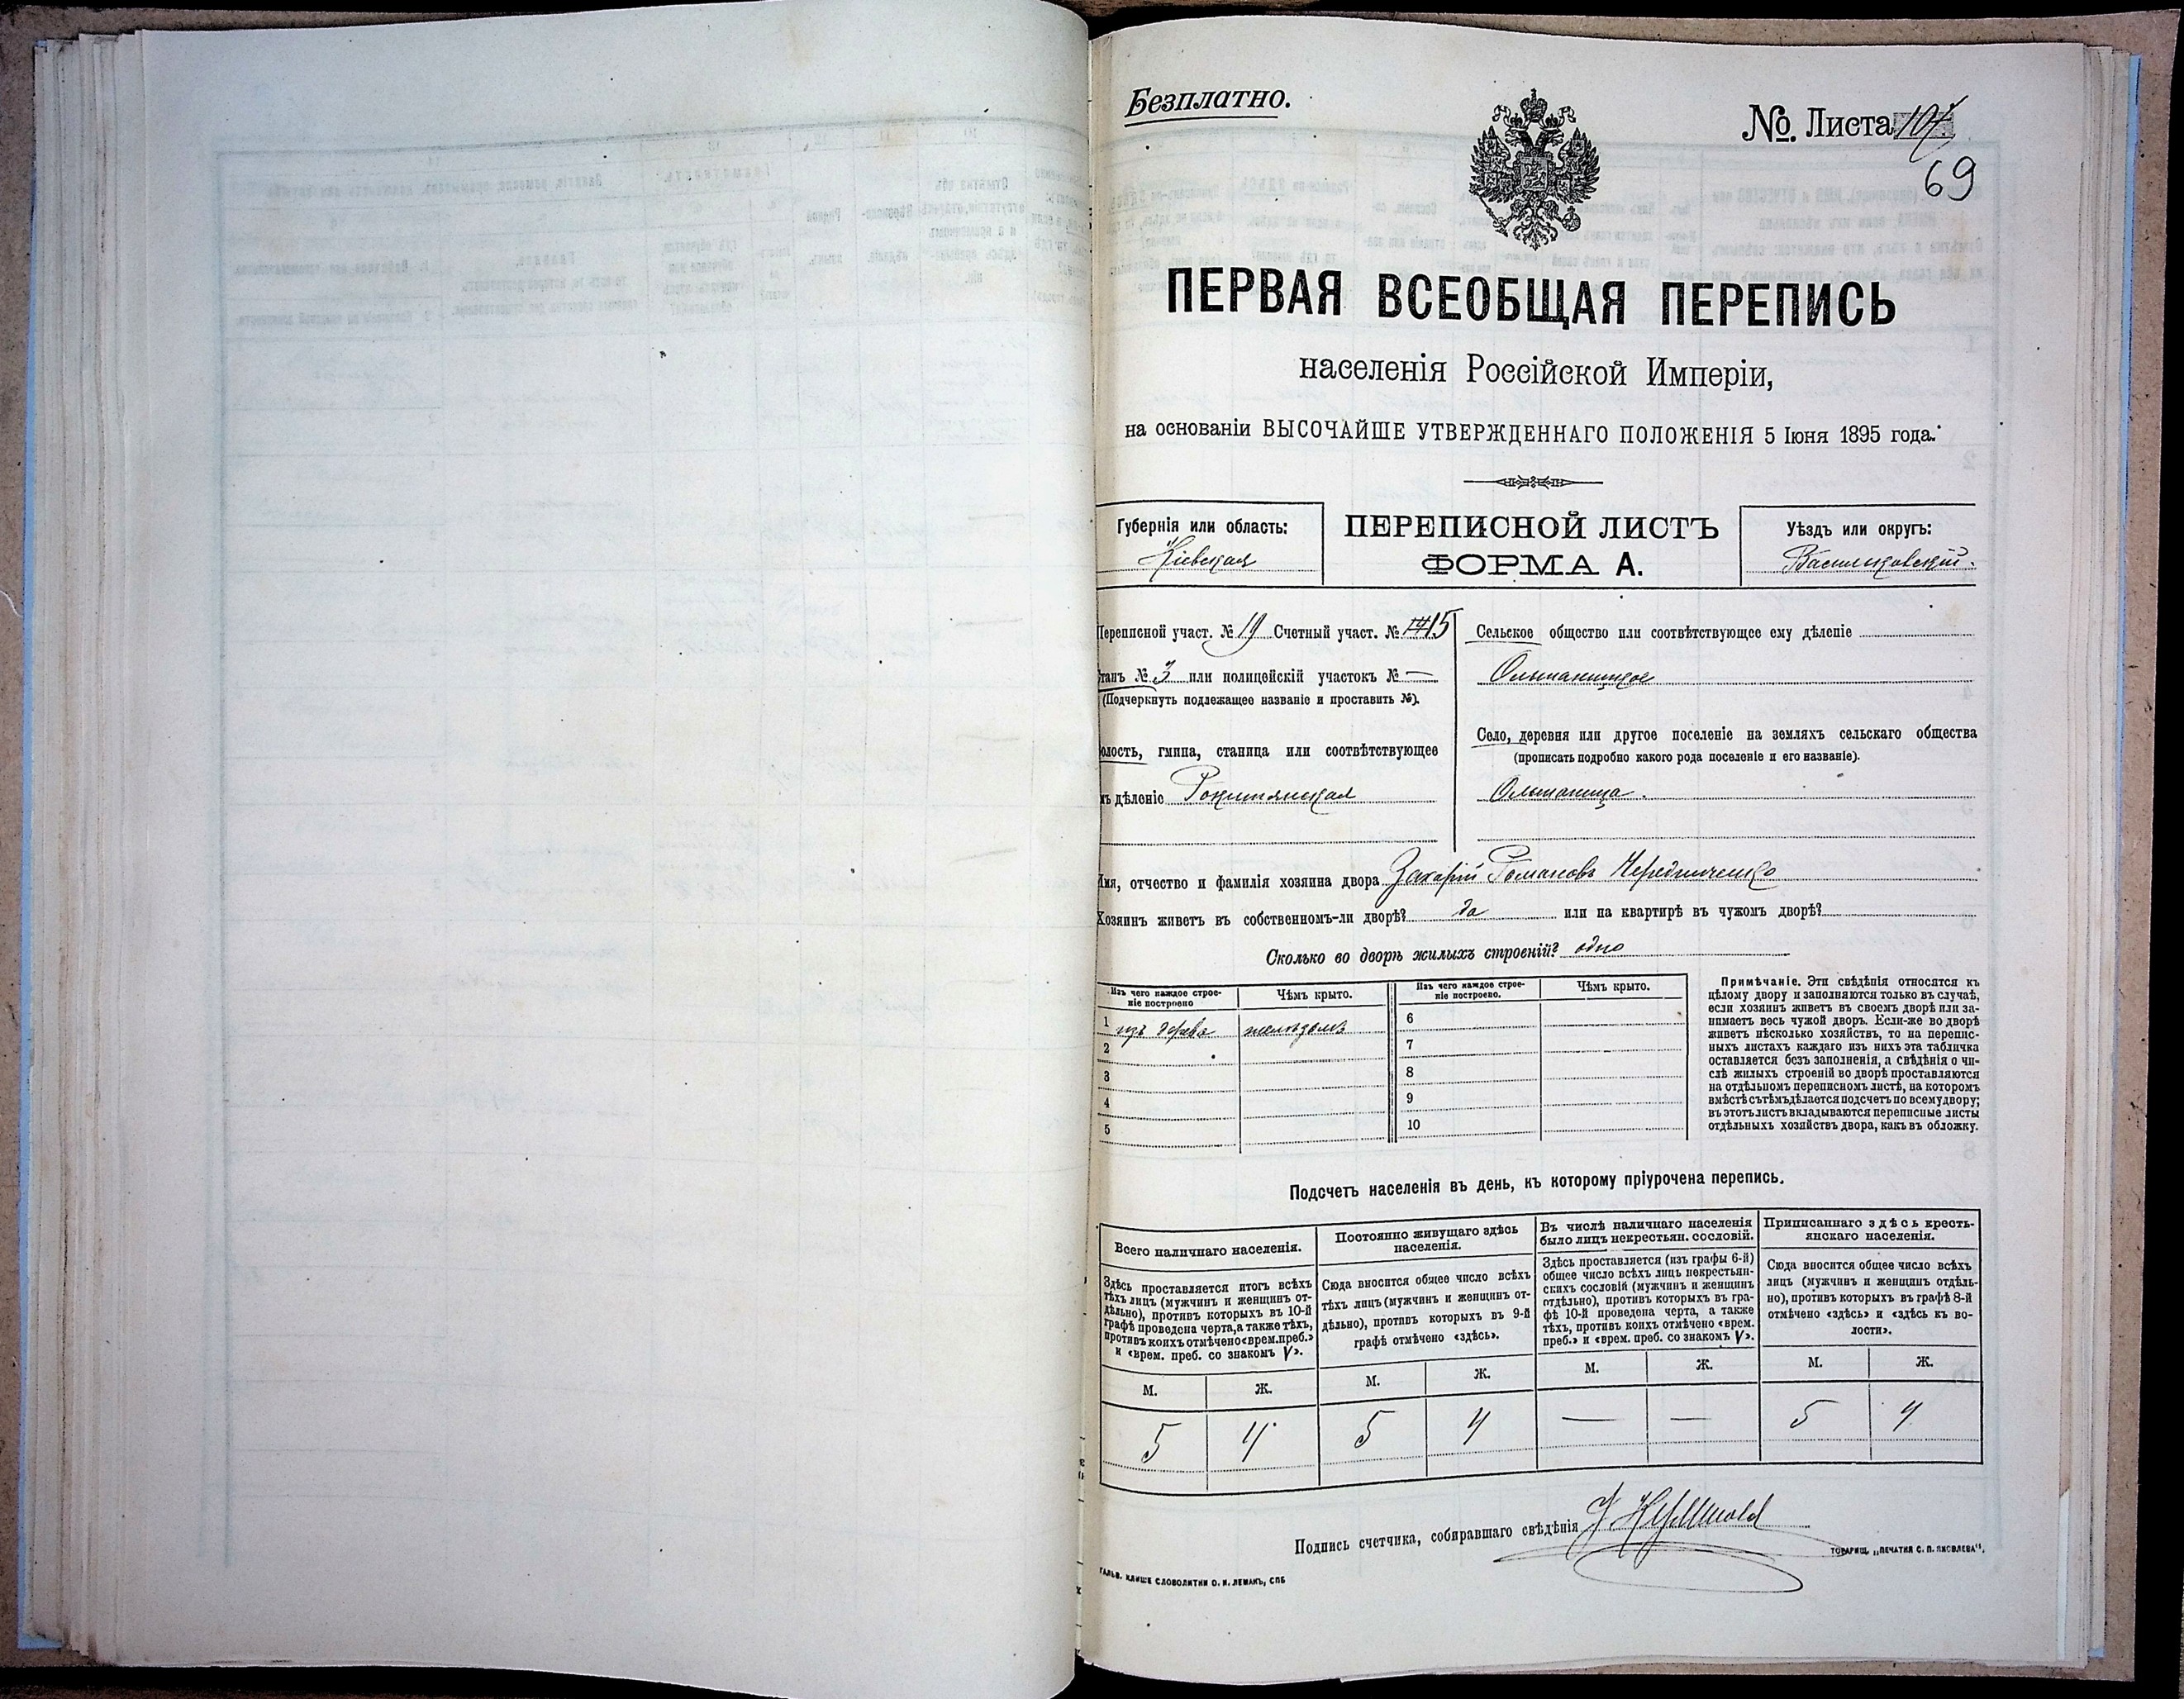 Безплатно.
№ Листа
69
ПЕРВАЯ ВСЕОБЩАЯ ПЕРЕПИСЬ
населенія Россійской Имперіи,
на основаніи ВЫСОЧАЙШЕ УТВЕРЖДЕННАГО ПОЛОЖЕНІЯ 5 Іюня 1895 года.
Губернія или область:
Кіевская
ПЕРЕПИСНОЙ ЛИСТЪ
ФОРМА А.
Уѣздъ или округъ:
Васильковскій.
Переписной участ. № 19 Счетный участ. № 15
танъ № 3 или полицейскій участокъ № —
(Подчеркнуть подлежащее названіе и проставить №).
олость, гмина, станица или соотвѣтствующее
ъ дѣленіе Рокитянская
Сельское общество или соотвѣтствующее ему дѣленіе
Ольшаницкое
Село, деревня или другое поселеніе на земляхъ сельскаго общества
(прописать подробно какого рода поселеніе и его названіе).
Ольшаница.
Имя, отчество и фамилія хозяина двора Захарій Романовъ Чередниченко
Хозяинъ живетъ въ собственномъ-ли дворѣ? да или на квартирѣ въ чужомъ дворѣ?
Сколько во дворѣ жилыхъ строеній? одно
Изъ чего каждое строе-
ніе построено
Чѣмъ крыто.
Изъ чего каждое строе-
ніе построено.
Чѣмъ крыто.
1 изъ дерева
6
2
7
3
8
4
9
5
10
Примѣчаніе. Эти свѣдѣнія относятся къ
цѣлому двору и заполняются только въ случаѣ,
если хозяинъ живетъ въ своемъ дворѣ или за-
нимаетъ весь чужой дворъ. Если-же во дворѣ
живетъ нѣсколько хозяйствъ, то на перепис-
ныхъ листахъ каждаго изъ нихъ эта табличка
оставляется безъ заполненія, а свѣдѣнія о чи-
слѣ жилыхъ строеній во дворѣ проставляются
на отдѣльномъ переписномъ листѣ, на которомъ
вмѣстѣ съ тѣмъ дѣлается подсчетъ по всему двору;
въ этотъ листъ вкладываются переписные листы
отдѣльныхъ хозяйствъ двора, какъ въ обложку.
Подсчетъ населенія въ день, къ которому пріурочена перепись.
Всего наличнаго населенія.
Здѣсь проставляется итогъ всѣхъ
тѣхъ лицъ (мужчинъ и женщинъ от-
дѣльно), противъ которыхъ въ 10-й
графѣ проведена черта, а также тѣхъ,
противъ коихъ отмѣчено «врем. преб.»
и «врем. преб. со знакомъ V».
М. Ж.
5 4
Постоянно живущаго здѣсь
населенія.
Сюда вносится общее число всѣхъ
тѣхъ лицъ (мужчинъ и женщинъ от-
дѣльно), противъ которыхъ въ 9-й
графѣ отмѣчено «здѣсь».
М. Ж.
5 4
Въ числѣ наличнаго населенія
было лицъ некрестьян. сословій.
Здѣсь проставляется (изъ графы 6-й)
общее число всѣхъ лицъ некрестьян-
скихъ сословій (мужчинъ и женщинъ
отдѣльно), противъ которыхъ въ гра-
фѣ 10-й проведена черта, а также
тѣхъ, противъ коихъ отмѣчено «врем.
преб.» и «врем. преб. со знакомъ V».
М. Ж.
— —
Приписаннаго здѣсь кресть-
янскаго населенія.
Сюда вносится общее число всѣхъ
лицъ (мужчинъ и женщинъ отдѣль-
но), противъ которыхъ въ графѣ 8-й
отмѣчено «здѣсь» и «здѣсь къ во-
лости».
М. Ж.
5 4
Подпись счетчика, собиравшаго свѣдѣнія
ГАЛЬВ. КЛИШЕ СЛОВОЛИТНИ О. И. ЛЕМАНЪ, СПБ
ТОВАРИЩ. „ПЕЧАТНЯ С. П. ЯКОВЛЕВА“.